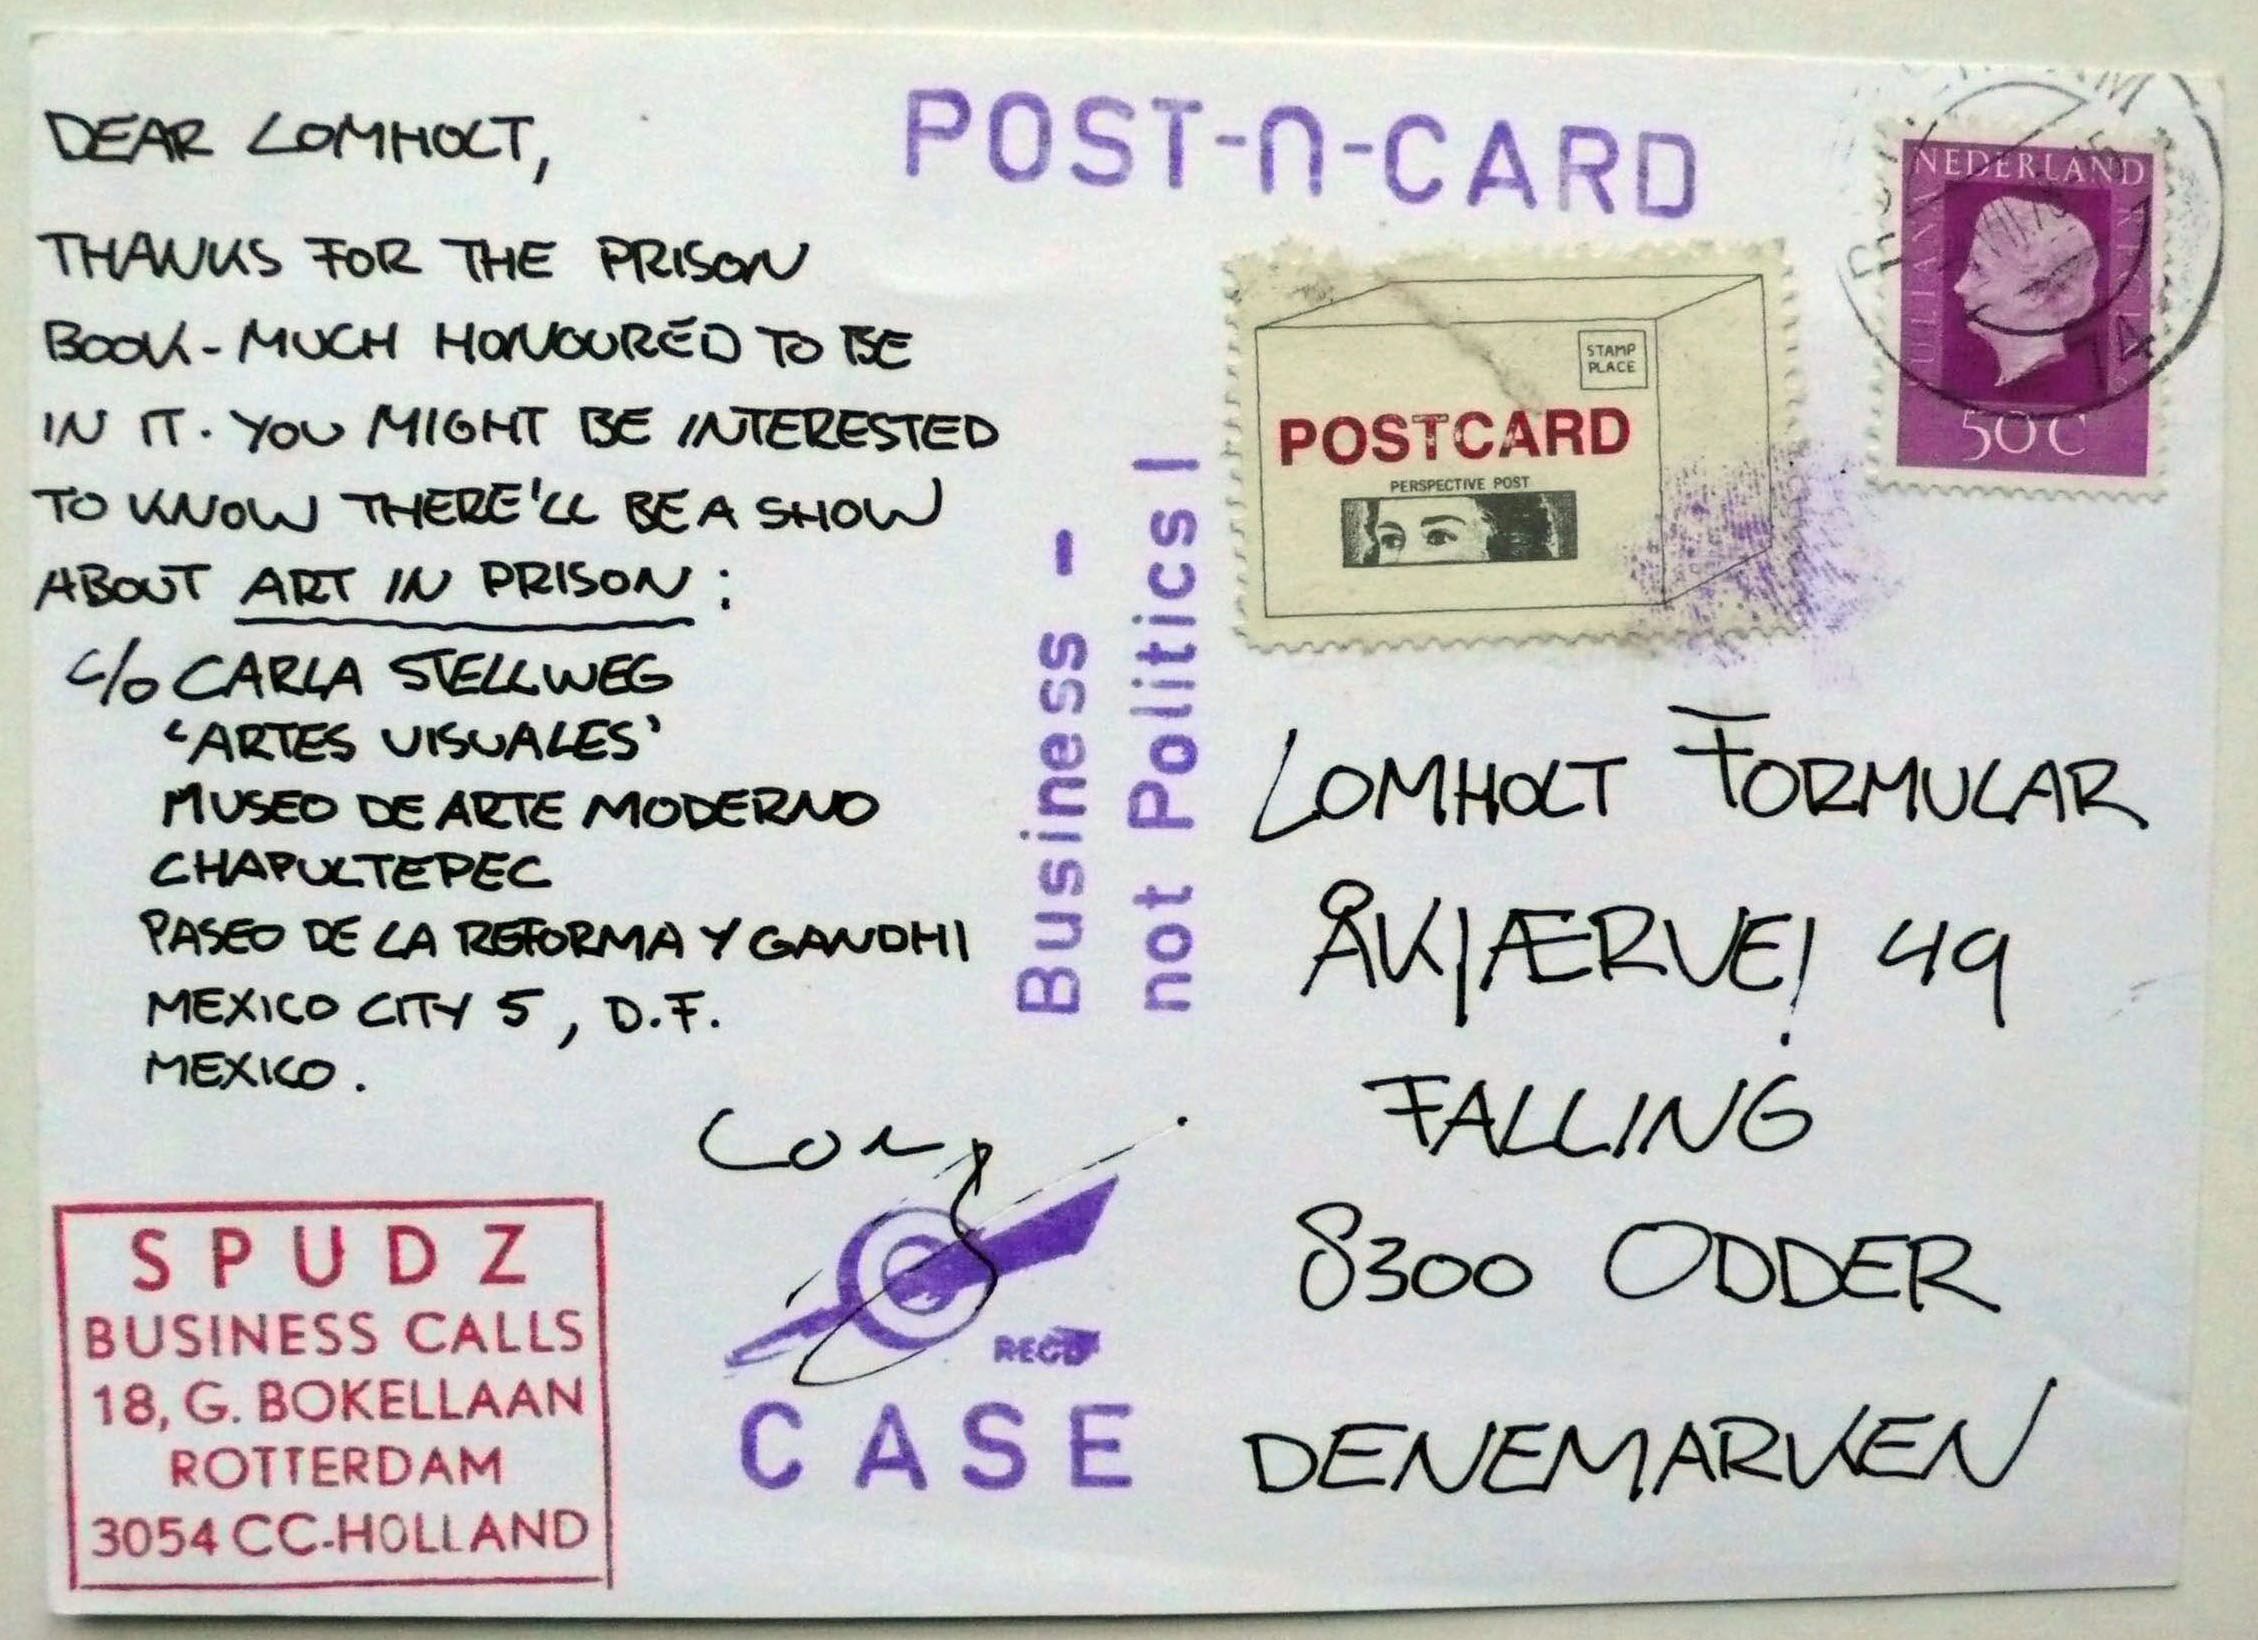 DEAR LOMHOLT,
THANKS FOR THE PRISON
BOOK - MUCH HONOURED TO BE
IN IT. YOU MIGHT BE INTERESTED
TO KNOW THERE'LL BE A SHOW
ABOUT ART IN PRISON :
c/o CARLA STELLWEG
'ARTES VISUALES'
MUSEO DE ARTE MODERNO
CHAPULTEPEC
PASEO DE LA REFORMA Y GANDHI
MEXICO CITY 5, D.F.
MEXICO.
SPUDZ
BUSINESS CALLS
18, G. BOKELLAAN
ROTTERDAM
3054 CC-HOLLAND
RECD
CASE
Business -
not Politics !
POST-n-CARD
STAMP
PLACE
POSTCARD
PERSPECTIVE POST
NEDERLAND
JULIANA
50 C
LOMHOLT FORMULAR
ÅKJÆRVEJ 49
FALLING
8300 ODDER
DENEMARKEN